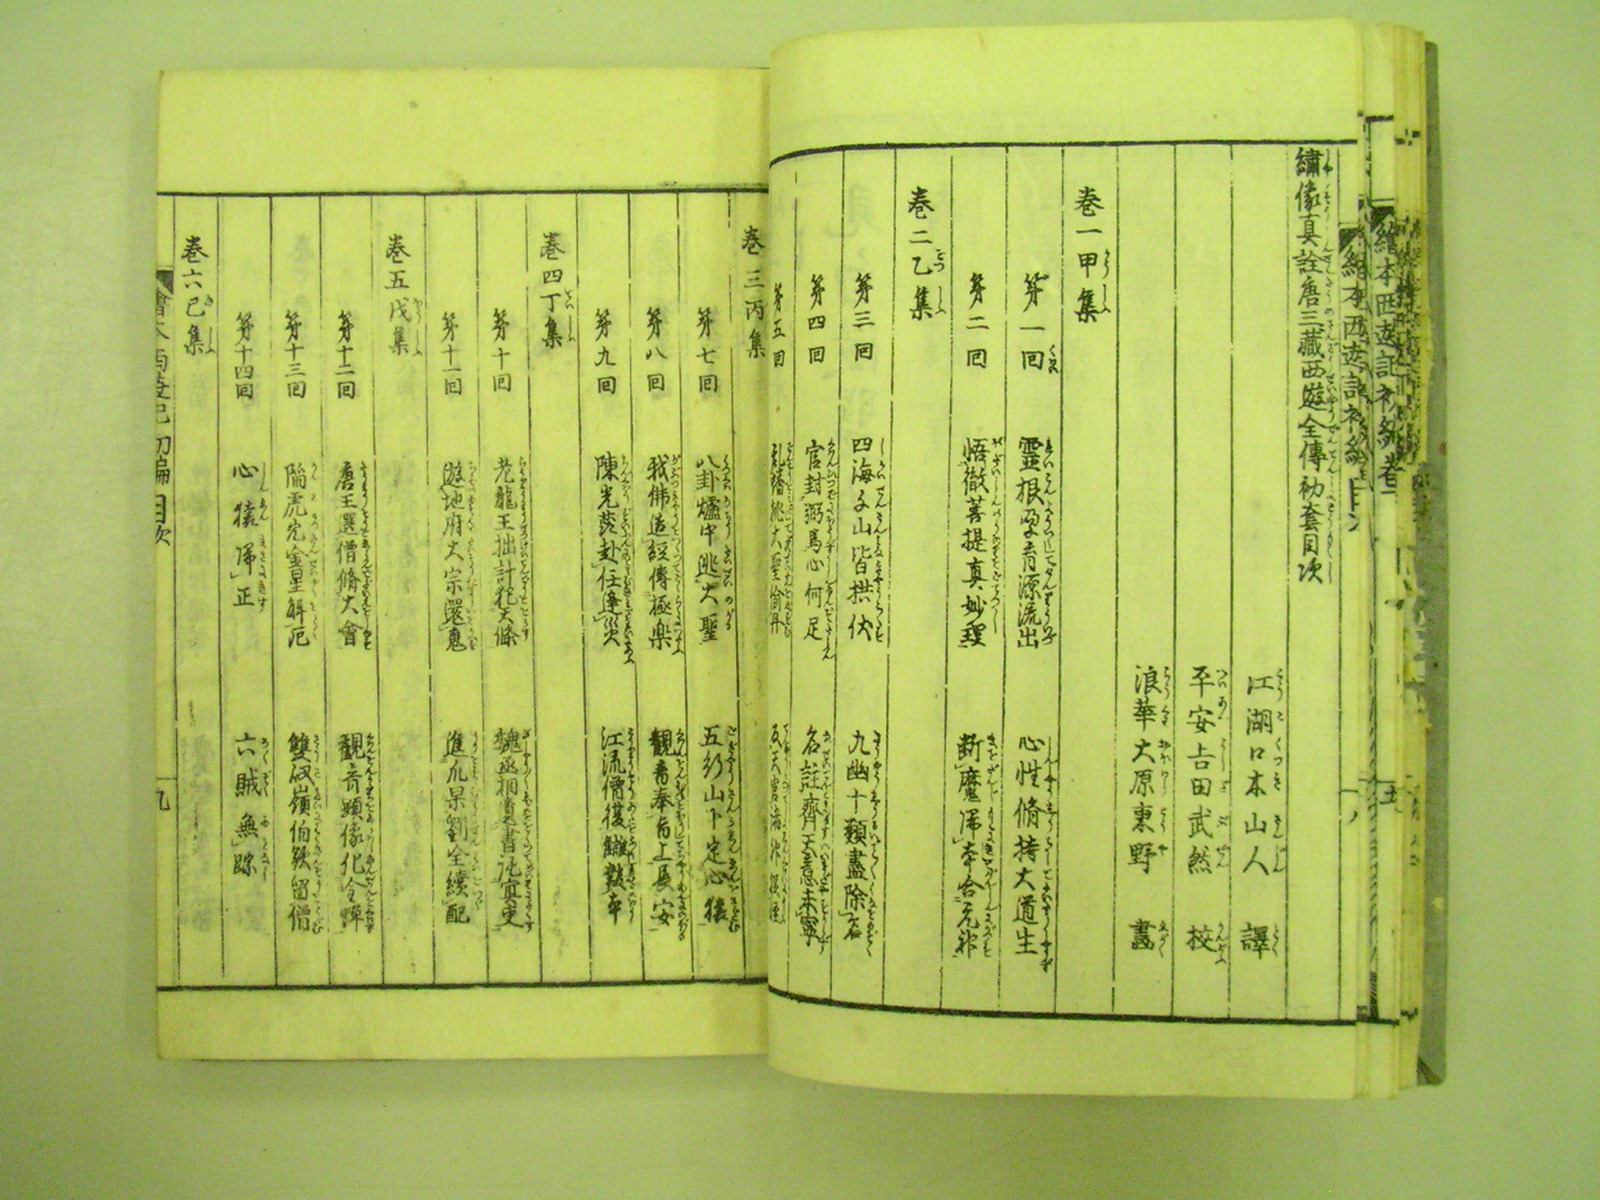 繍像真詮唐三藏西遊全傳初套目次
江湖口木山人 譯
平安吉田武然 校
浪華大原東野 畵
巻一甲集
第一回 靈根孕育源流出 心性脩持大道生
第二回 悟徹菩提真妙理 断魔帰本合元神
巻二乙集
第三回 四海千山皆拱伏 九幽十類盡除名
第四回 官封弼馬心何足 名註齊天意未寧
第五回 大聖偸丹
巻三丙集
第七回 八卦爐中逃大聖 五行山下定心猿
第八回 我佛造經傳極楽 觀音奉旨上長安
第九回 陳光蕋赴任逢災 江流僧復讎報本
巻四丁集
第十回 老龍王拙計犯天條 魏丞相遺書託冥吏
第十一回 遊地府太宗還魂 進瓜果劉全續配
巻五戊集
第十二回 唐王選僧脩大會 觀音顕像化金蝉
第十三回 陥虎穴金星解厄 雙叉嶺伯欽留僧
第十四回 心猿帰正 六賊無踪
巻六已集
繪本西遊記初編 目次 九